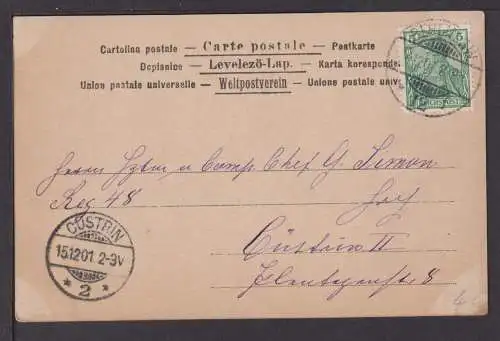 Cartolina postale — Carte postale — Postkarte
Dopisnice — Levelező-Lap. — Karta korespond
Union postale universelle — Weltpostverein — Unione postale univ
5 5
REICHSPOST
Herrn Hptm u Comp. Chef G. Simon
Reg 48
Cüstrin II
CÜSTRIN
15.12.01. 2-3V
* 2 *